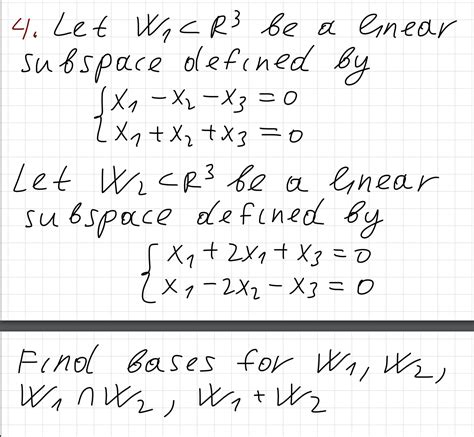 4. Let W₁ ⊂ R³ be a linear
subspace defined by
{ x₁ - x₂ - x₃ = 0
x₁ + x₂ + x₃ = 0
Let W₂ ⊂ R³ be a linear
subspace defined by
{ x₁ + 2x₁ + x₃ = 0
x₁ - 2x₂ - x₃ = 0
Find bases for W₁, W₂,
W₁ ∩ W₂, W₁ + W₂